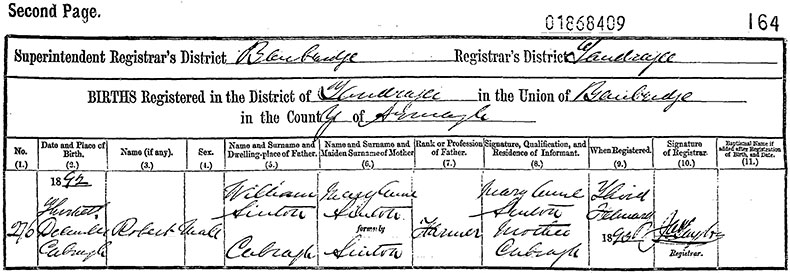 Second Page.
01868409
164
Superintendent Registrar's District Banbridge Registrar's District Tandragee
BIRTHS Registered in the District of Tandragee in the Union of Banbridge
in the County of Armagh
No. Date and Place of Birth. Name (if any). Sex. Name and Surname and Dwelling-place of Father. Name and Surname and Maiden Surname of Mother Rank or Profession of Father. Signature, Qualification, and Residence of Informant. When Registered. Signature of Registrar. Baptismal Name if added after Registration of Birth, and Date.
(1.) (2.) (3.) (4.) (5.) (6.) (7.) (8.) (9.) (10.) (11.)
1892 William Mary Anne Mary Anne Third
Sinton Sinton Sinton February
276 December Robert Male formerly Farmer Mother 1893
Cabragh Cabragh Sinton Cabragh Registrar.